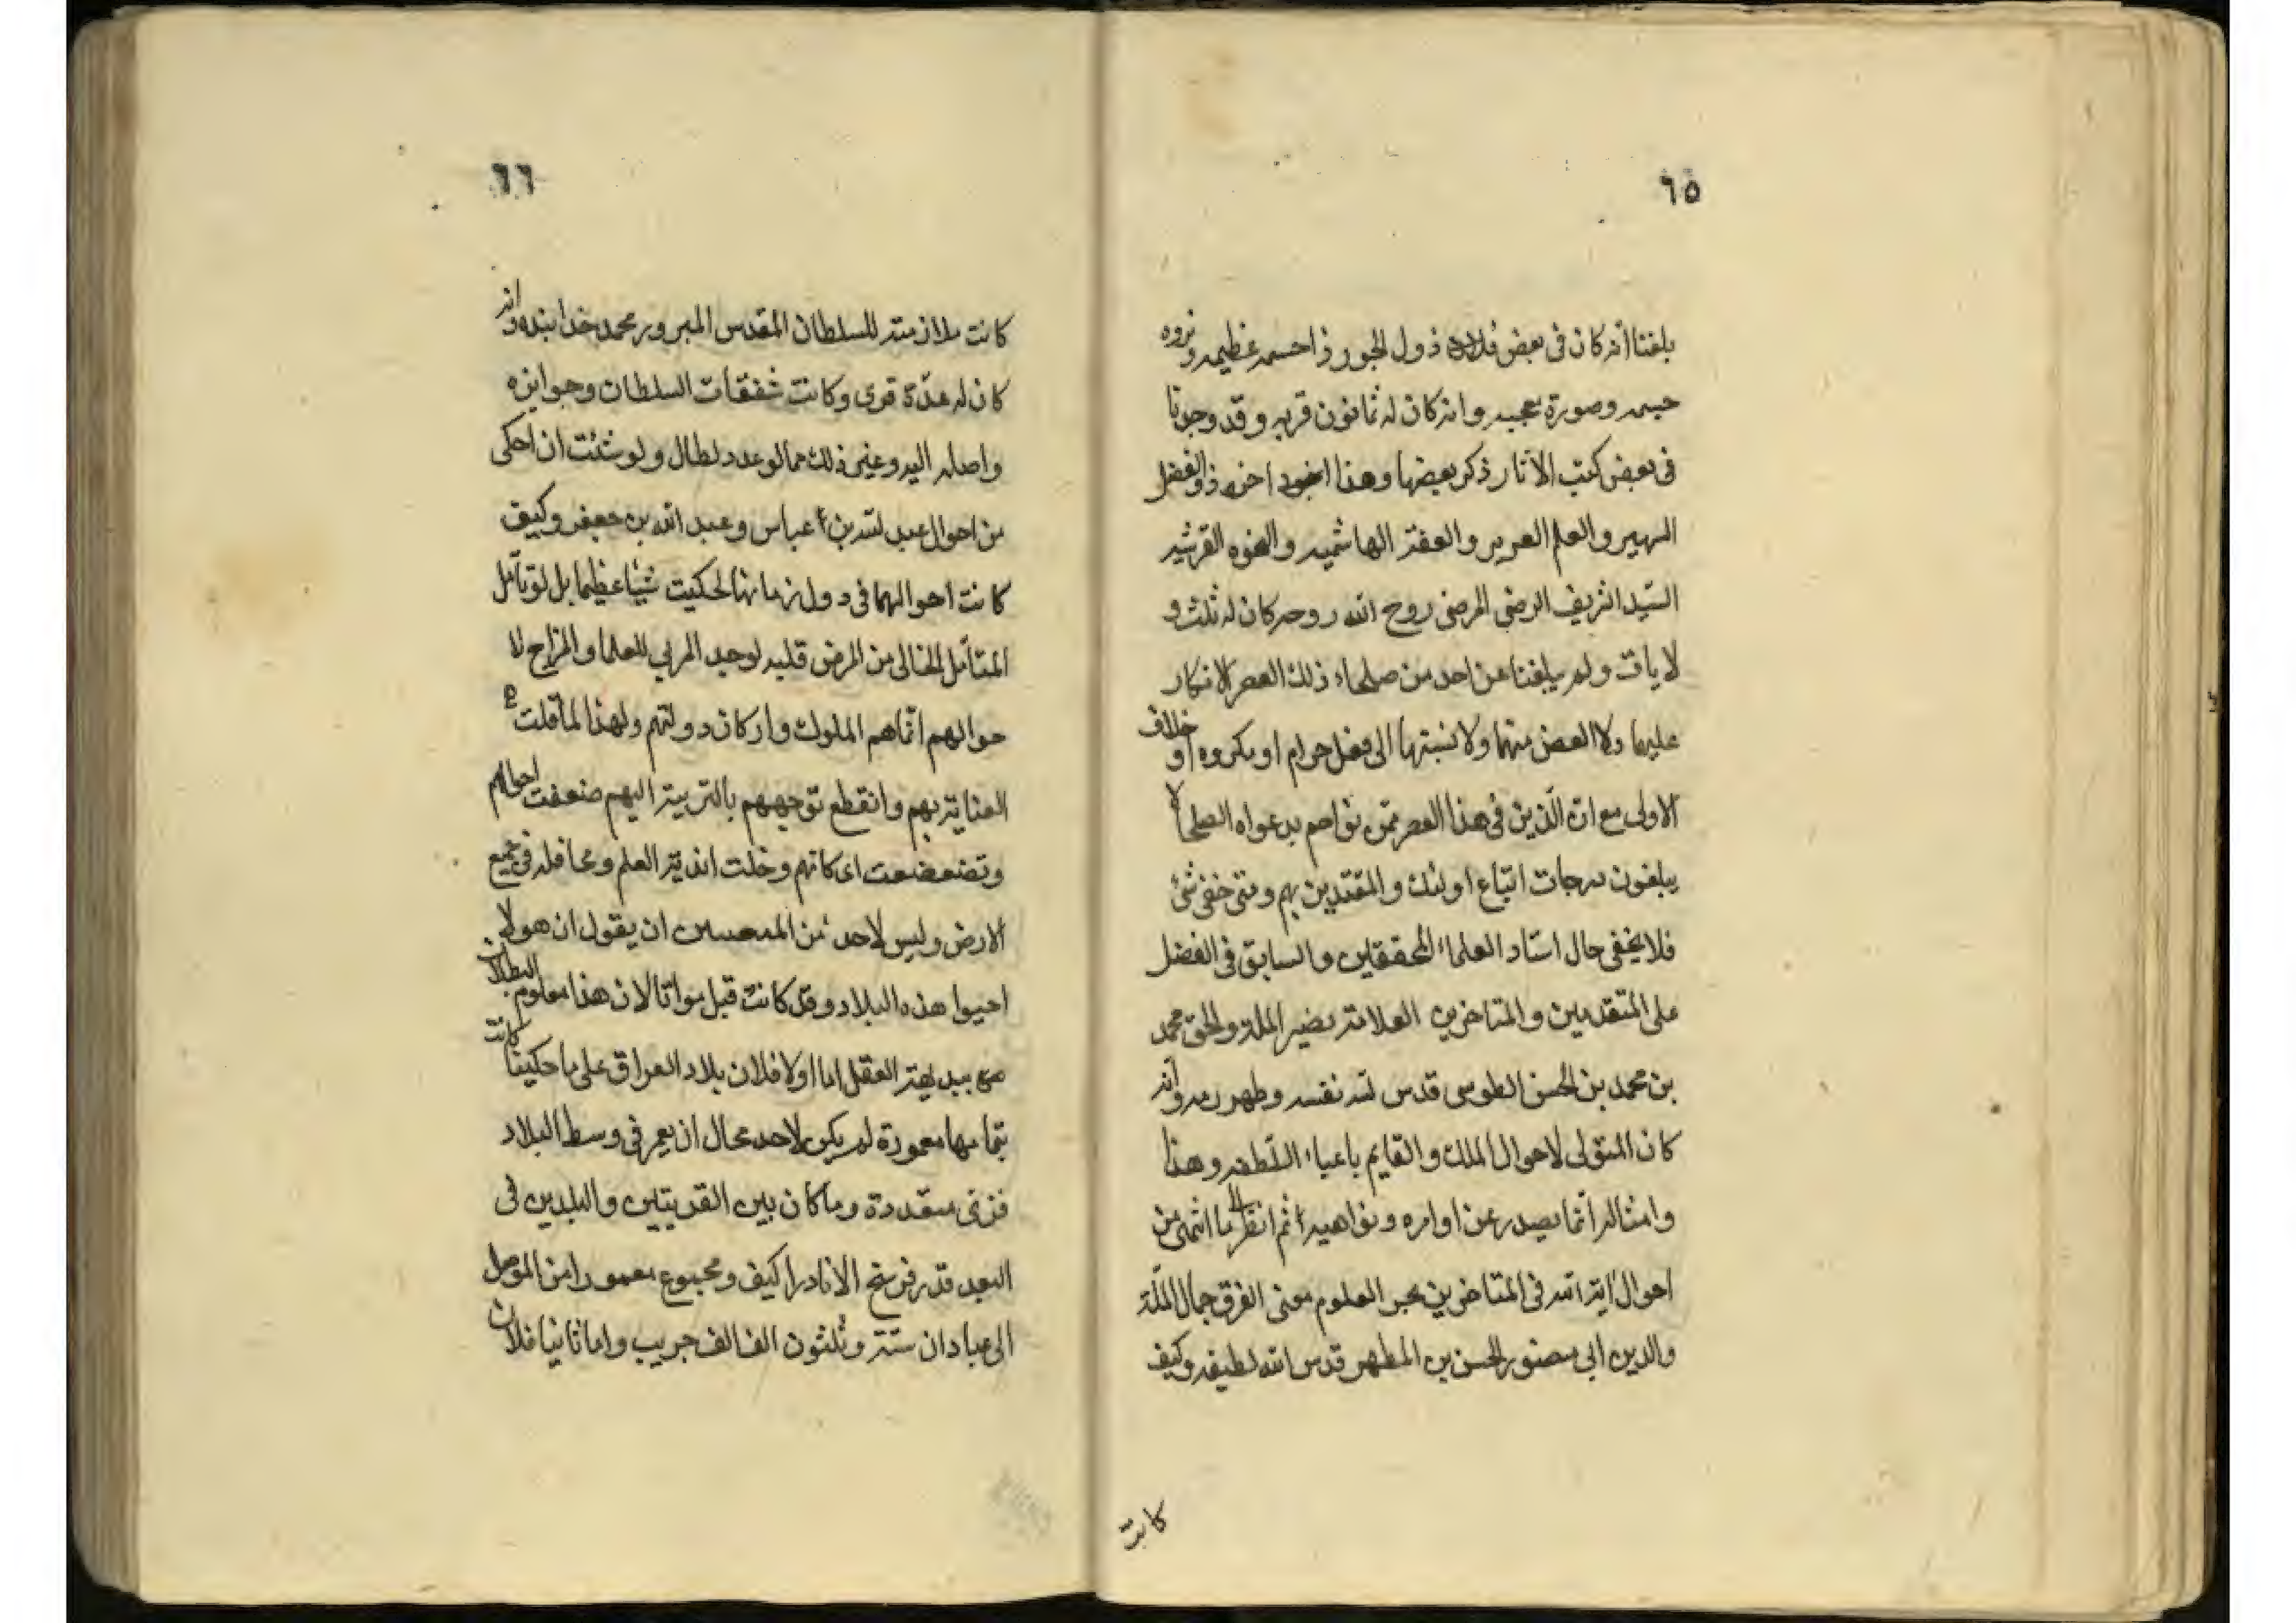 ٦٥
بلغنا انه كان فى بعض دول الجور ذا حشمه عظيمه وثروه
جسمه وصورة معجبه وانه كان له ثمانون قريه وقد وجدنا
فى بعض كتب الآثار ذكر بعضها وهذا اخوه ذو الفضل
الشهير والعلم الغزير والعفة الهاشميه والنخوه القرشيه
السيد الشريف الرضى المرضى روح الله روحه كان له ثلث و
لايات ولم يبلغنا عن احد من صلحاء ذلك العصر الانكار
عليهما ولا الغض منهما ولا نسبتهما الى فعل حرام او مكروه او خلاف
الاولى مع ان الذين فى هذا العصر ممن تراهم بدعواه الصلحا لا
يبلغون درجات اتباع اولئك والمقتدين بهم ومتى خفى شئ
فلا يخفى حال استاد العلماء المحققين والسابق فى الفضل
على المتقدمين والمتاخرين العلامة نصير الملة والحق محمد
بن محمد بن الحسن الطوسى قدس الله نفسه وطهر رمسه وانه
كان المتولى لاحوال الملك والقايم باعباء السلطنه وهذا
وامثاله انما يصدر عن اوامره ونواهيه ثم انظر الى ما اشتهر من
احوال اية الله فى المتاخرين بحر العلوم مفتى الفرق جمال الملة
والدين ابى منصور الحسن بن المطهر قدس الله لطيفه وكيف
كانت
٦٦
كانت ملازمته للسلطان المقدس المبرور محمد خدا بنده وانه
كان له عدة قرى وكانت شفقات السلطان وجوايزه
واصله اليه وغير ذلك مما لو عدد لطال ولو شئت ان احكى
من احوال عبد الله بن عباس وعبد الله بن جعفر وكيف
كانت احوالهما فى دول زمانهما لحكيت شيئا عظيما بل لو تامل
المتامل الخالى من المرض قلبه لوجد المربى للعلما والمزاح لا
حوالهم انما هم الملوك واركان دولتهم ولهذا لما قلت
العناية بهم وانقطع توجههم بالتربية اليهم ضعفت احوالهم
وتضعضعت اركانهم وخلت اندية العلم ومحافله فى جميع
الارض وليس لاحد من ان يقول ان هولا
احيوا هذه البلاد وقد كانت قبل مواتا لان هذا معلوم البطلان
من بديهة العقل اما اولا فلان بلاد العراق على ما حكينا كانت
بتمامها معمورة لم يكن لاحد مجال ان يعمر فى وسط البلاد
قرى متعددة وما كان بين القريتين والبلدين فى
البعد قدر فرسخ الا نادرا كيف ومجموع معمورها من الموصل
الى عبادان ستة وثلثون الف الف جريب واما ثانيا فلان